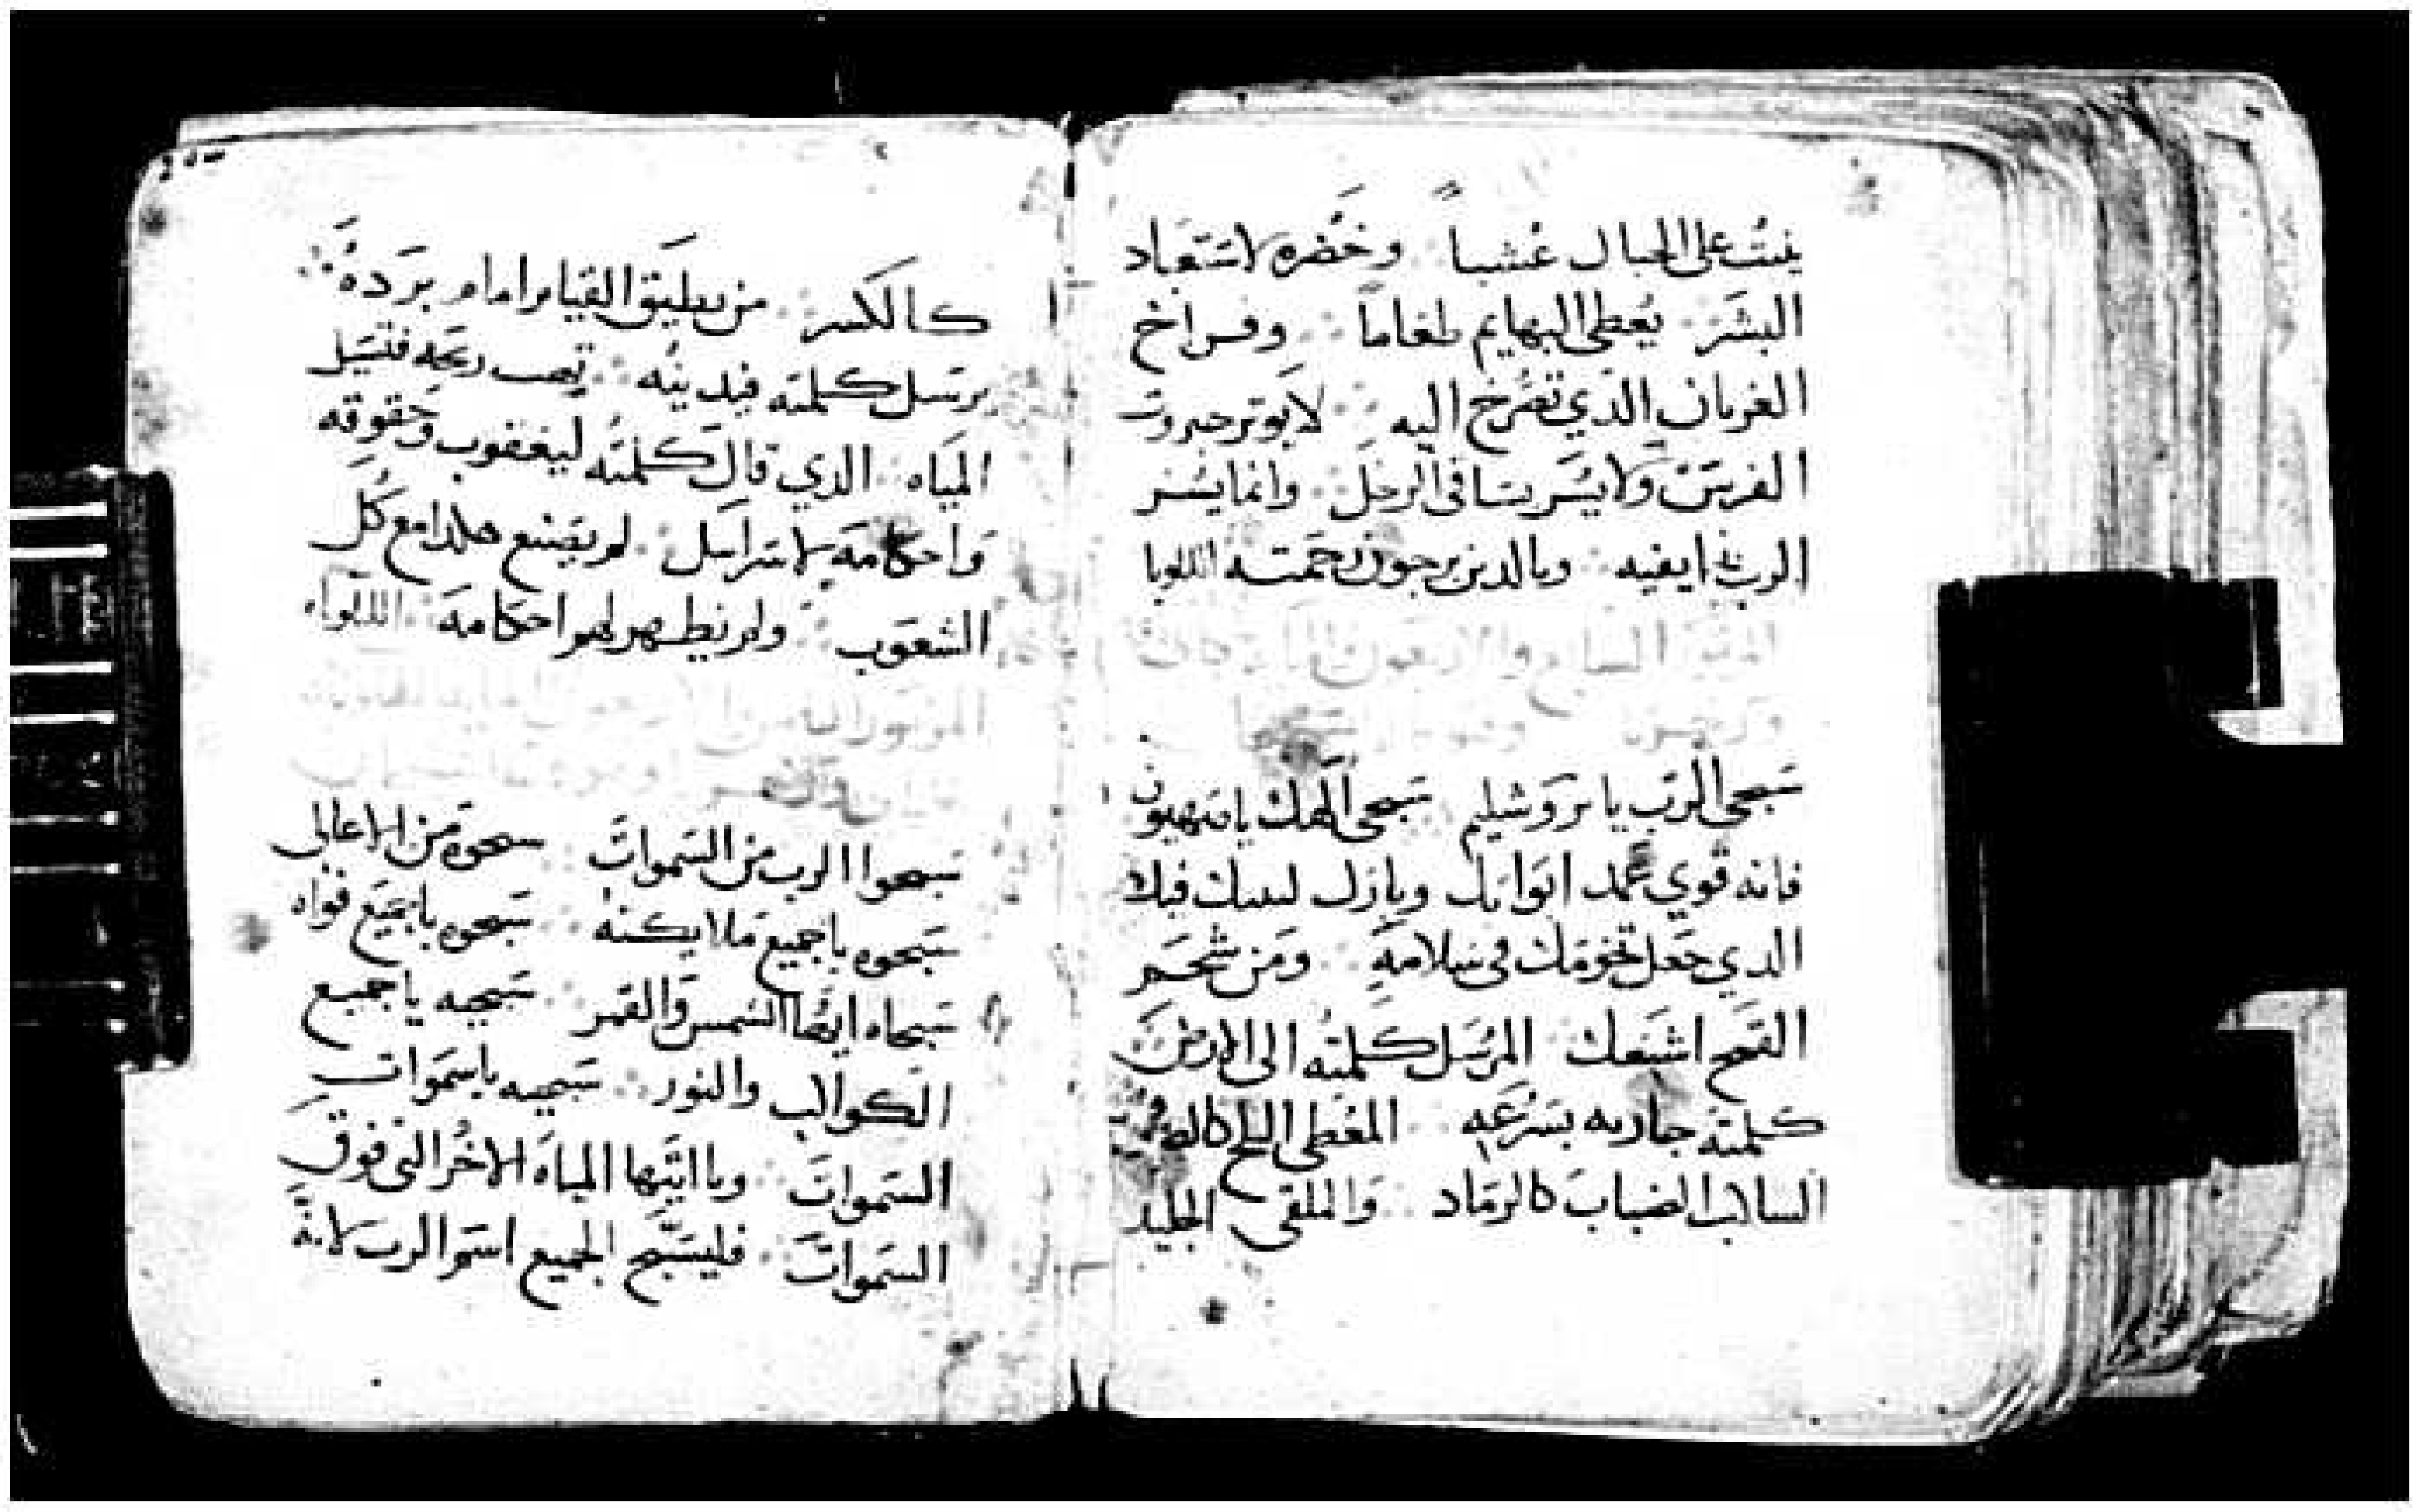 ينبت على الجبال عُشباً وخُضره لاستعباد
البشر يُعطي البهايم طعاماً وفراخ
الغربان الذي تصرخ اليه لا يوتر جبروت
الفرس ولا يسر بساقي الرجل وانما يسر
الرب بخايفيه وبالدين يرجون رحمته الللويا
المزمور السابع والاربعون
سبحي الرب يا يروشليم سبحي الهك يا صهيون
فانه قوي عمد ابوابك وبارك لبنيك فيك
الدي جعل تخومك في سلامه ومن شحم
القمح اشبعك المرسل كلمته الى الارض
كلمته جاريه بسرعه المعطي الثلج كالصوف
الساكب الضباب كالرماد والملقي الجليد
كالكسر من يطيق القيام امام برده
يرسل كلمته فيديبه تهب ريحه فتسيل
المياه الدي قال كلمته ليعقوب وحقوقه
واحكامه لاسراييل لم يصنع هكدا مع كل
الشعوب ولم يظهر لهم احكامه الللويا
المزمور
سبحوا الرب من السموات سبحوه من الاعالي
سبحوه يا جميع ملايكته سبحوه يا جميع قواه
سبحاه ايها الشمس والقمر سبحيه يا جميع
الكواكب والنور سبحيه يا سموات
السموات ويا ايتها المياه الاخر التي فوق
السموات فليسبح الجميع اسم الرب لانه